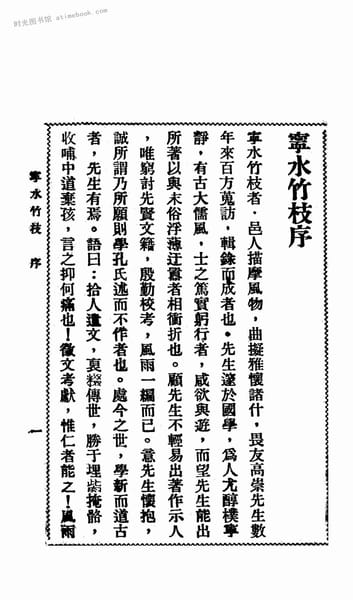 时光图书馆 atimebook.com
寧水竹枝序
寧水竹枝者，邑人描摩風物，曲擬雅懷諸什，畏友高崇先生數
年來百方蒐訪，輯錄而成者也。先生邃於國學，爲人尤醇樸寧
靜，有古大儒風，士之篤實躬行者，咸欲與遊，而望先生能出
所著以與末俗浮薄迂囂者相衝折也。顧先生不輕易出著作示人
，唯窮討先賢文籍，殷勤校考，風雨一編而已。意先生懷抱，
誠所謂乃所願則學孔氏述而不作者也。處今之世，學新而道古
者，先生有焉。語曰：拾人遺文，裒輯傳世，勝于埋胔掩骼，
收哺中道棄孩，言之抑何痛也！徵文考獻，惟仁者能之！風雨
寧水竹枝 序
一